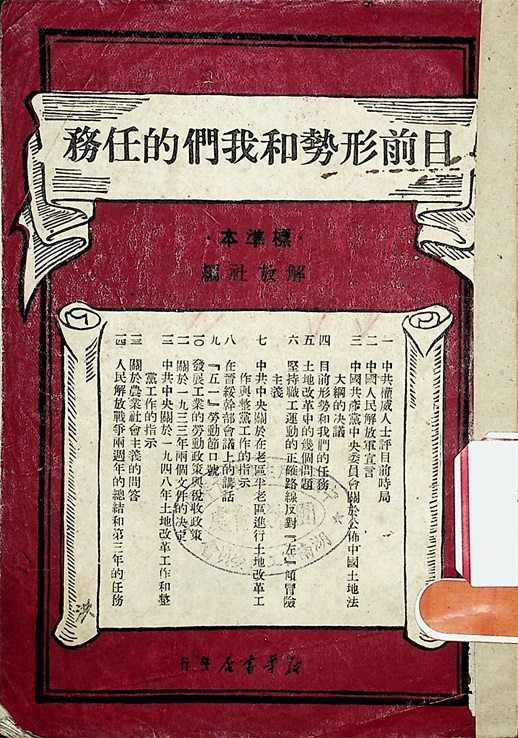 目前形勢和我們的任務
·標準本·
解放社編
一 中共權威人士評目前時局
二 中國人民解放軍宣言
三 中國共產黨中央委員會關於公佈中國土地法
大綱的決議
四 目前形勢和我們的任務
五 土地改革中的幾個問題
六 堅持職工運動的正確路線反對『左』傾冒險
主義
七 中共中央關於在老區半老區進行土地改革工
作與整黨工作的指示
八 在晉綏幹部會議上的講話
九 『五一』勞動節口號
一〇 發展工業的勞動政策與稅收政策
一一 關於一九三三年兩個文件的決定
一二 中共中央關於一九四八年土地改革工作和整
黨工作的指示
一三 關於農業社會主義的問答
一四 人民解放戰爭兩週年的總結和第三年的任務
新華書店發行